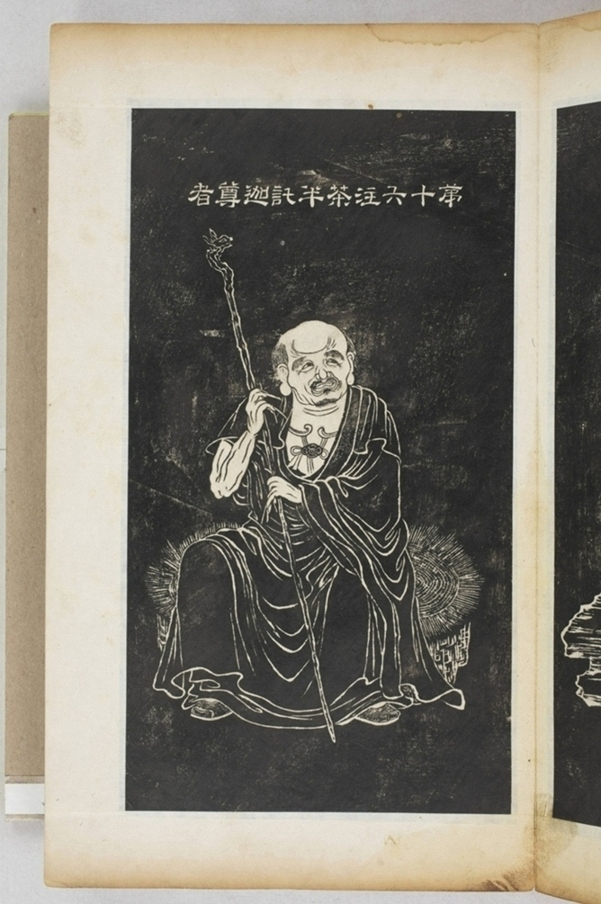 第十六注茶半託迦尊者